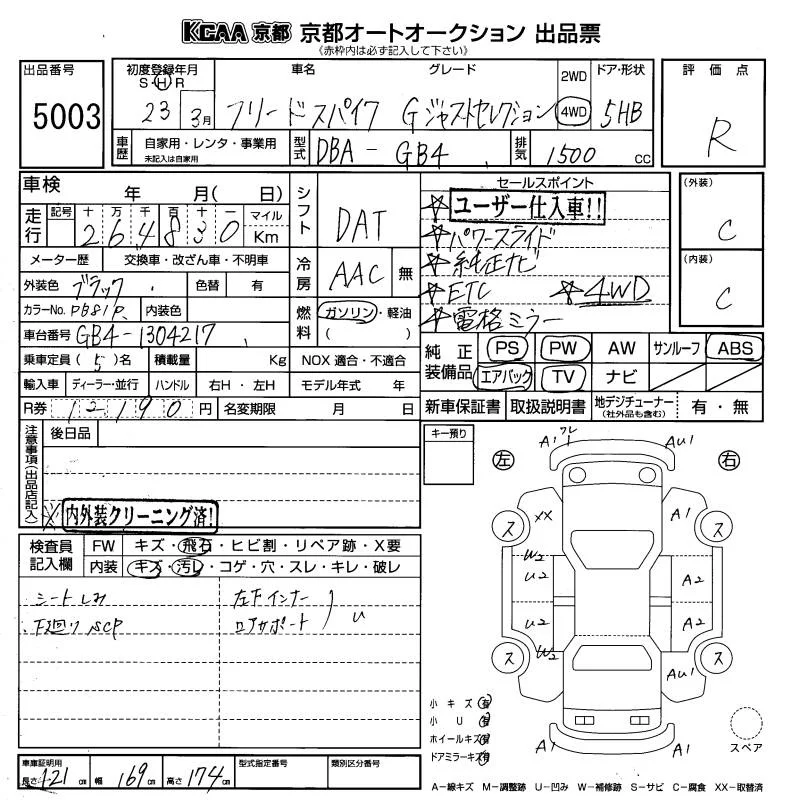 KCAA 京都 京都オートオークション 出品票
《赤枠内は必ず記入して下さい》
出品番号
5003
初度登録年月
S・H・R
23 3月
車名 グレード
フリードスパイク Gジャストセレクション
2WD
4WD
ドア・形状
5HB
評価点
R
車歴
自家用・レンタ・事業用
未記入は自家用
型式
DBA - GB4
排気
1500 cc
車検 年 月( 日)
走行 記号 十 万 千 百 十 一 マイル
264830 Km
メーター歴 交換車・改ざん車・不明車
外装色 ブラック 色替 有
カラーNo. 内装色
車台番号 GB4-1304217
乗車定員(5)名 積載量 Kg
輸入車 ディーラー・並行 ハンドル 右H・左H
R券 12190円 名変期限 月 日
シフト DAT
冷房 AAC 無
燃料 ガソリン・軽油
( )
NOX 適合・不適合
モデル年式 年
セールスポイント
☆ユーザー仕入車!!
☆パワースライド
☆純正ナビ
☆ETC ☆4WD
☆電格ミラー
(外装)
C
(内装)
C
純正装備品
PS PW AW サンルーフ ABS
エアバック TV ナビ
新車保証書 取扱説明書 地デジチューナー
(社外品も含む)
有・無
注意事項(出品店記入)
後日品
※内外装クリーニング済!
検査員記入欄
FW キズ・飛石・ヒビ割・リペア跡・X要
内装 キズ・汚レ・コゲ・穴・スレ・キレ・破レ
・シートしみ
・下廻りSCP
左下インナー
ロアサポート
U
キー預り
左 右
A1 フレ AU1
XX A1
ス ス
W2
U2 A2
U2 A2
W2
ス ス
AU1
A1 A1
小キズ 有
小U 有
ホイールキズ 有
ドアミラーキズ 有
スペア
車庫証明用
長さ421cm 幅169cm 高さ174cm
型式指定番号
類別区分番号
A-線キズ M-調整跡 U-凹み W-補修跡 S-サビ C-腐食 XX-取替済